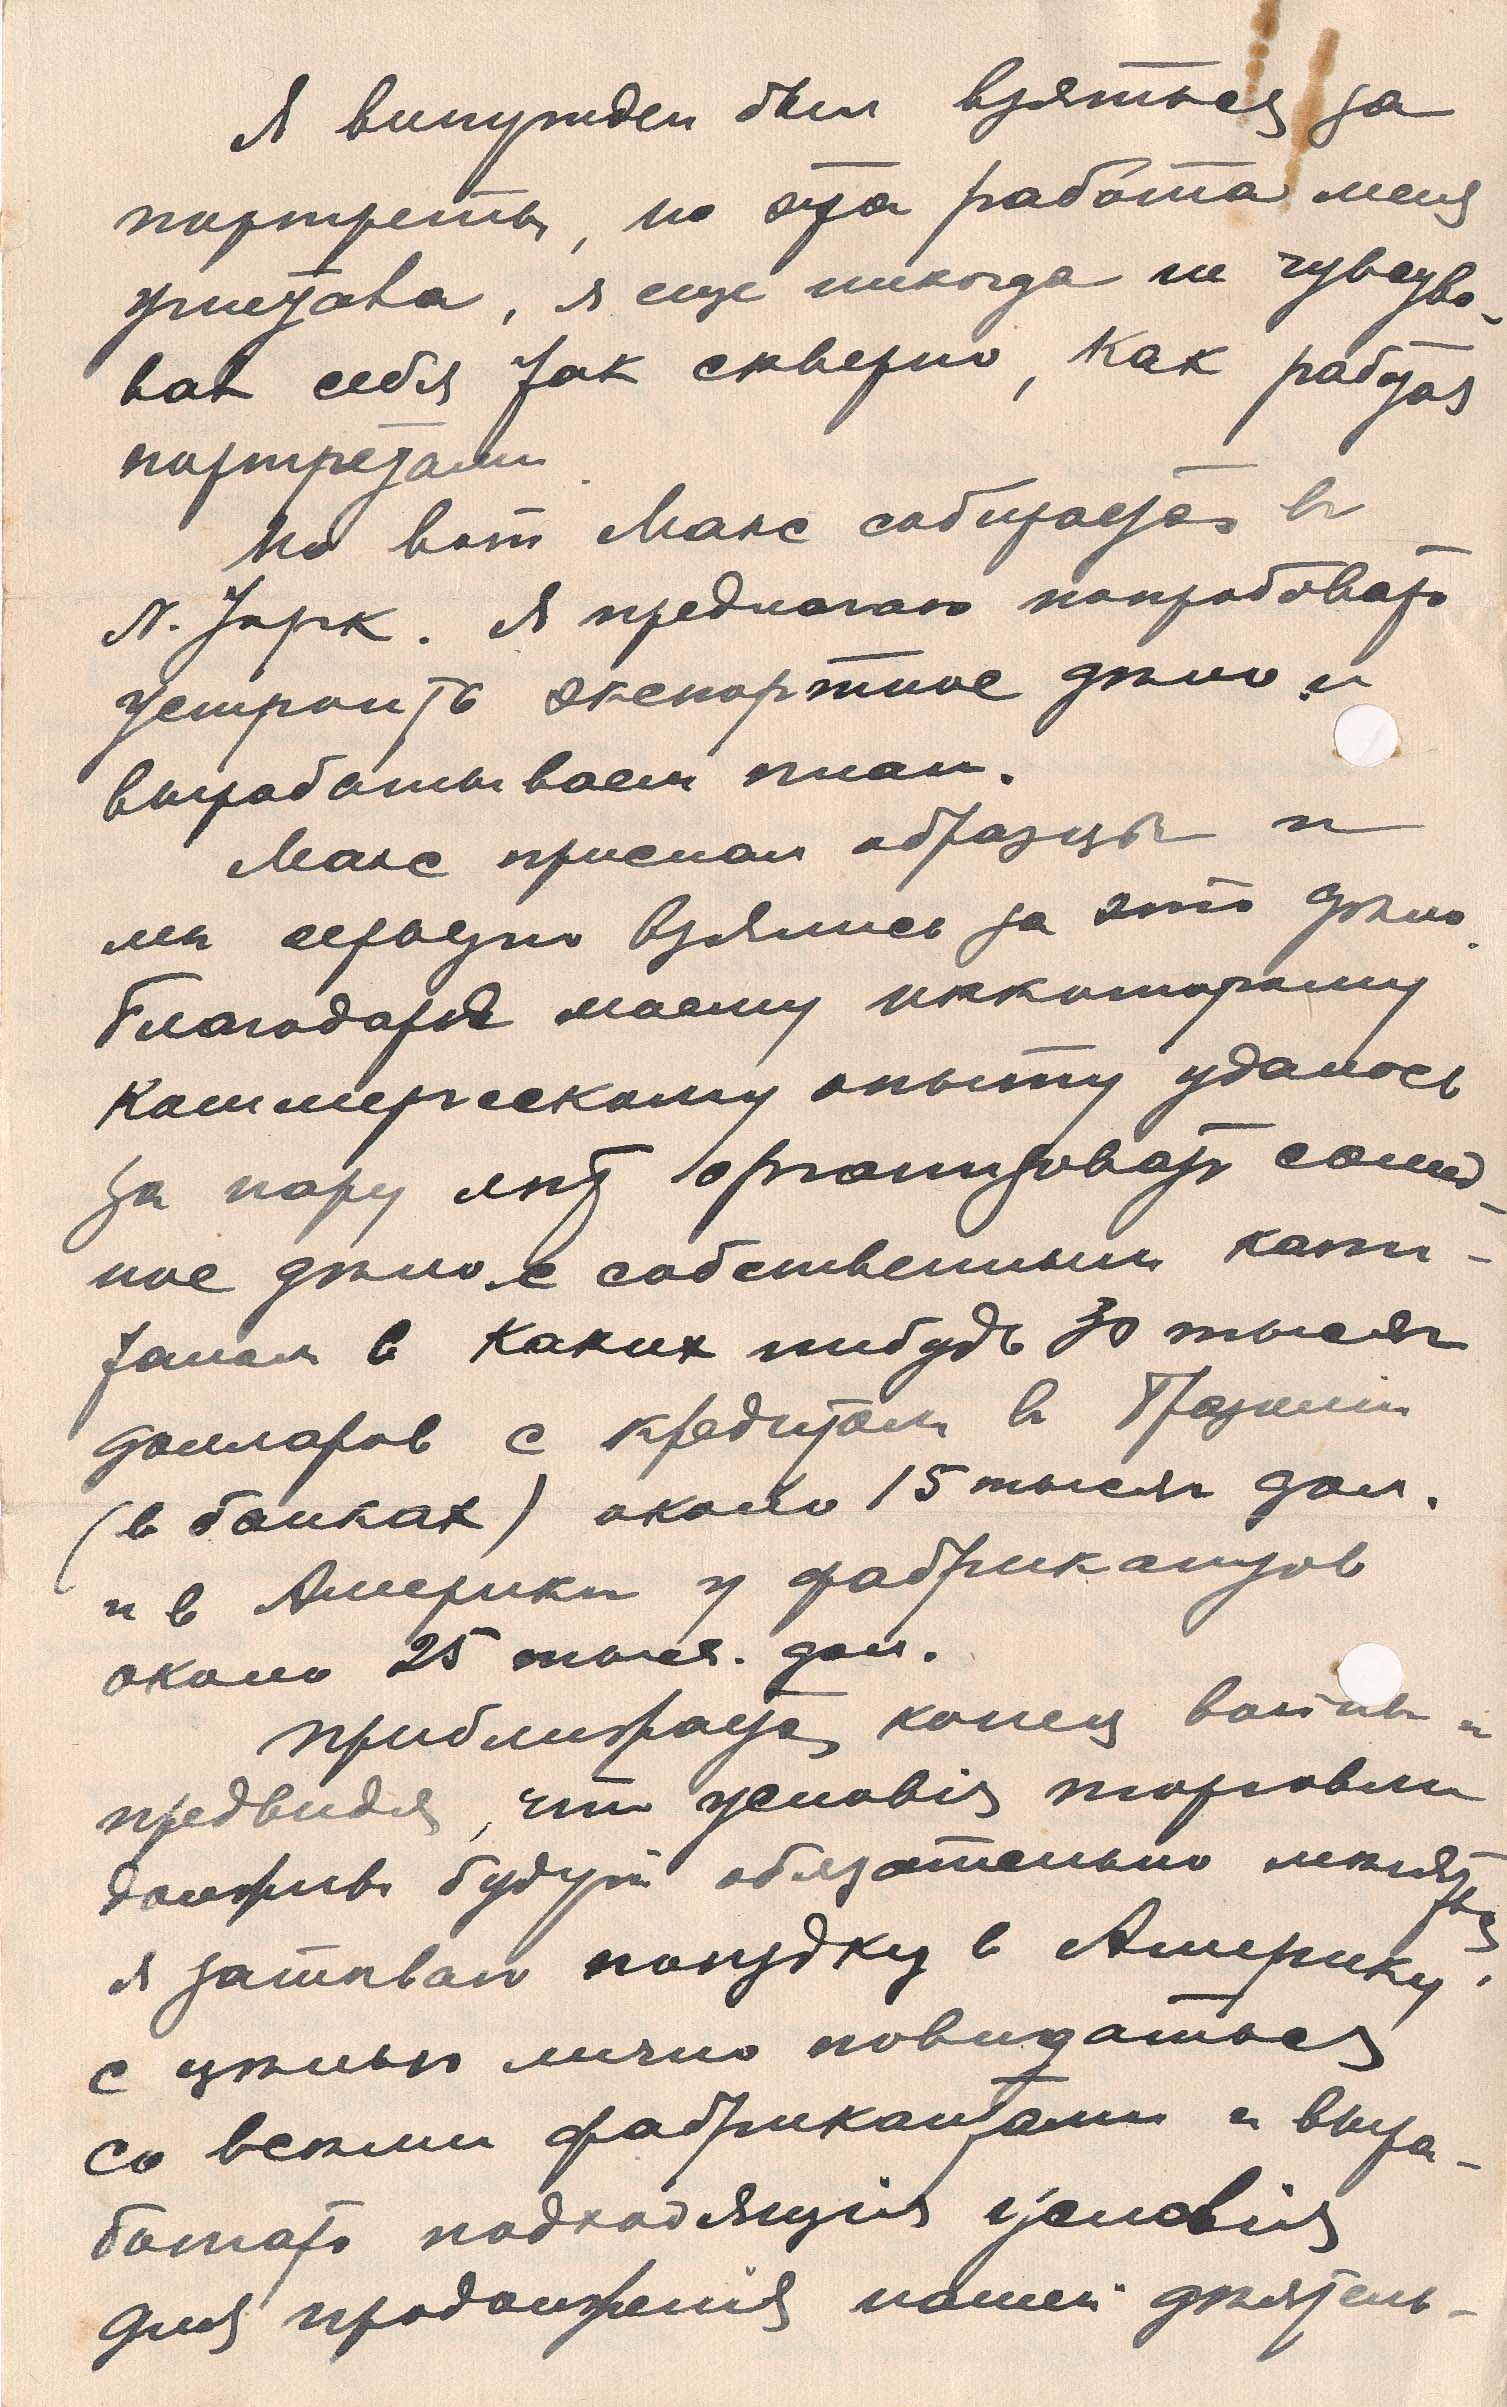 Я вынужден был взяться за
портреты, но эта работа меня
угнетала, я еще никогда не чувство-
вал себя так скверно, как работая
портретами.
Но вот Макс собирается в
N. Іорк. Я предлагаю попробовать
устроить экспортное дѣло и
вырабатываем план.
Макс прислал образцы и
мы серьезно взялись за это дѣло.
Благодаря моему нѣкоторому
коммерческому опыту удалось
за пару лѣт организовать солид-
ное дѣло с собственным капи-
талом в каких нибудь 30 тысяч
долларов с кредитом в Бразиліи
(в банках) около 15 тысяч дол.
и в Америкѣ у фабрикантов
около 25 тысяч. дол.
Приближается конец войны и
предвидя, что условія торговли
должны будут обязательно меняться
я затѣваю поѣздку в Америку,
с цѣлью лично повидаться
со всѣми фабрикантами и выра-
ботать подходящія условія
для продолженія нашей дѣятель-